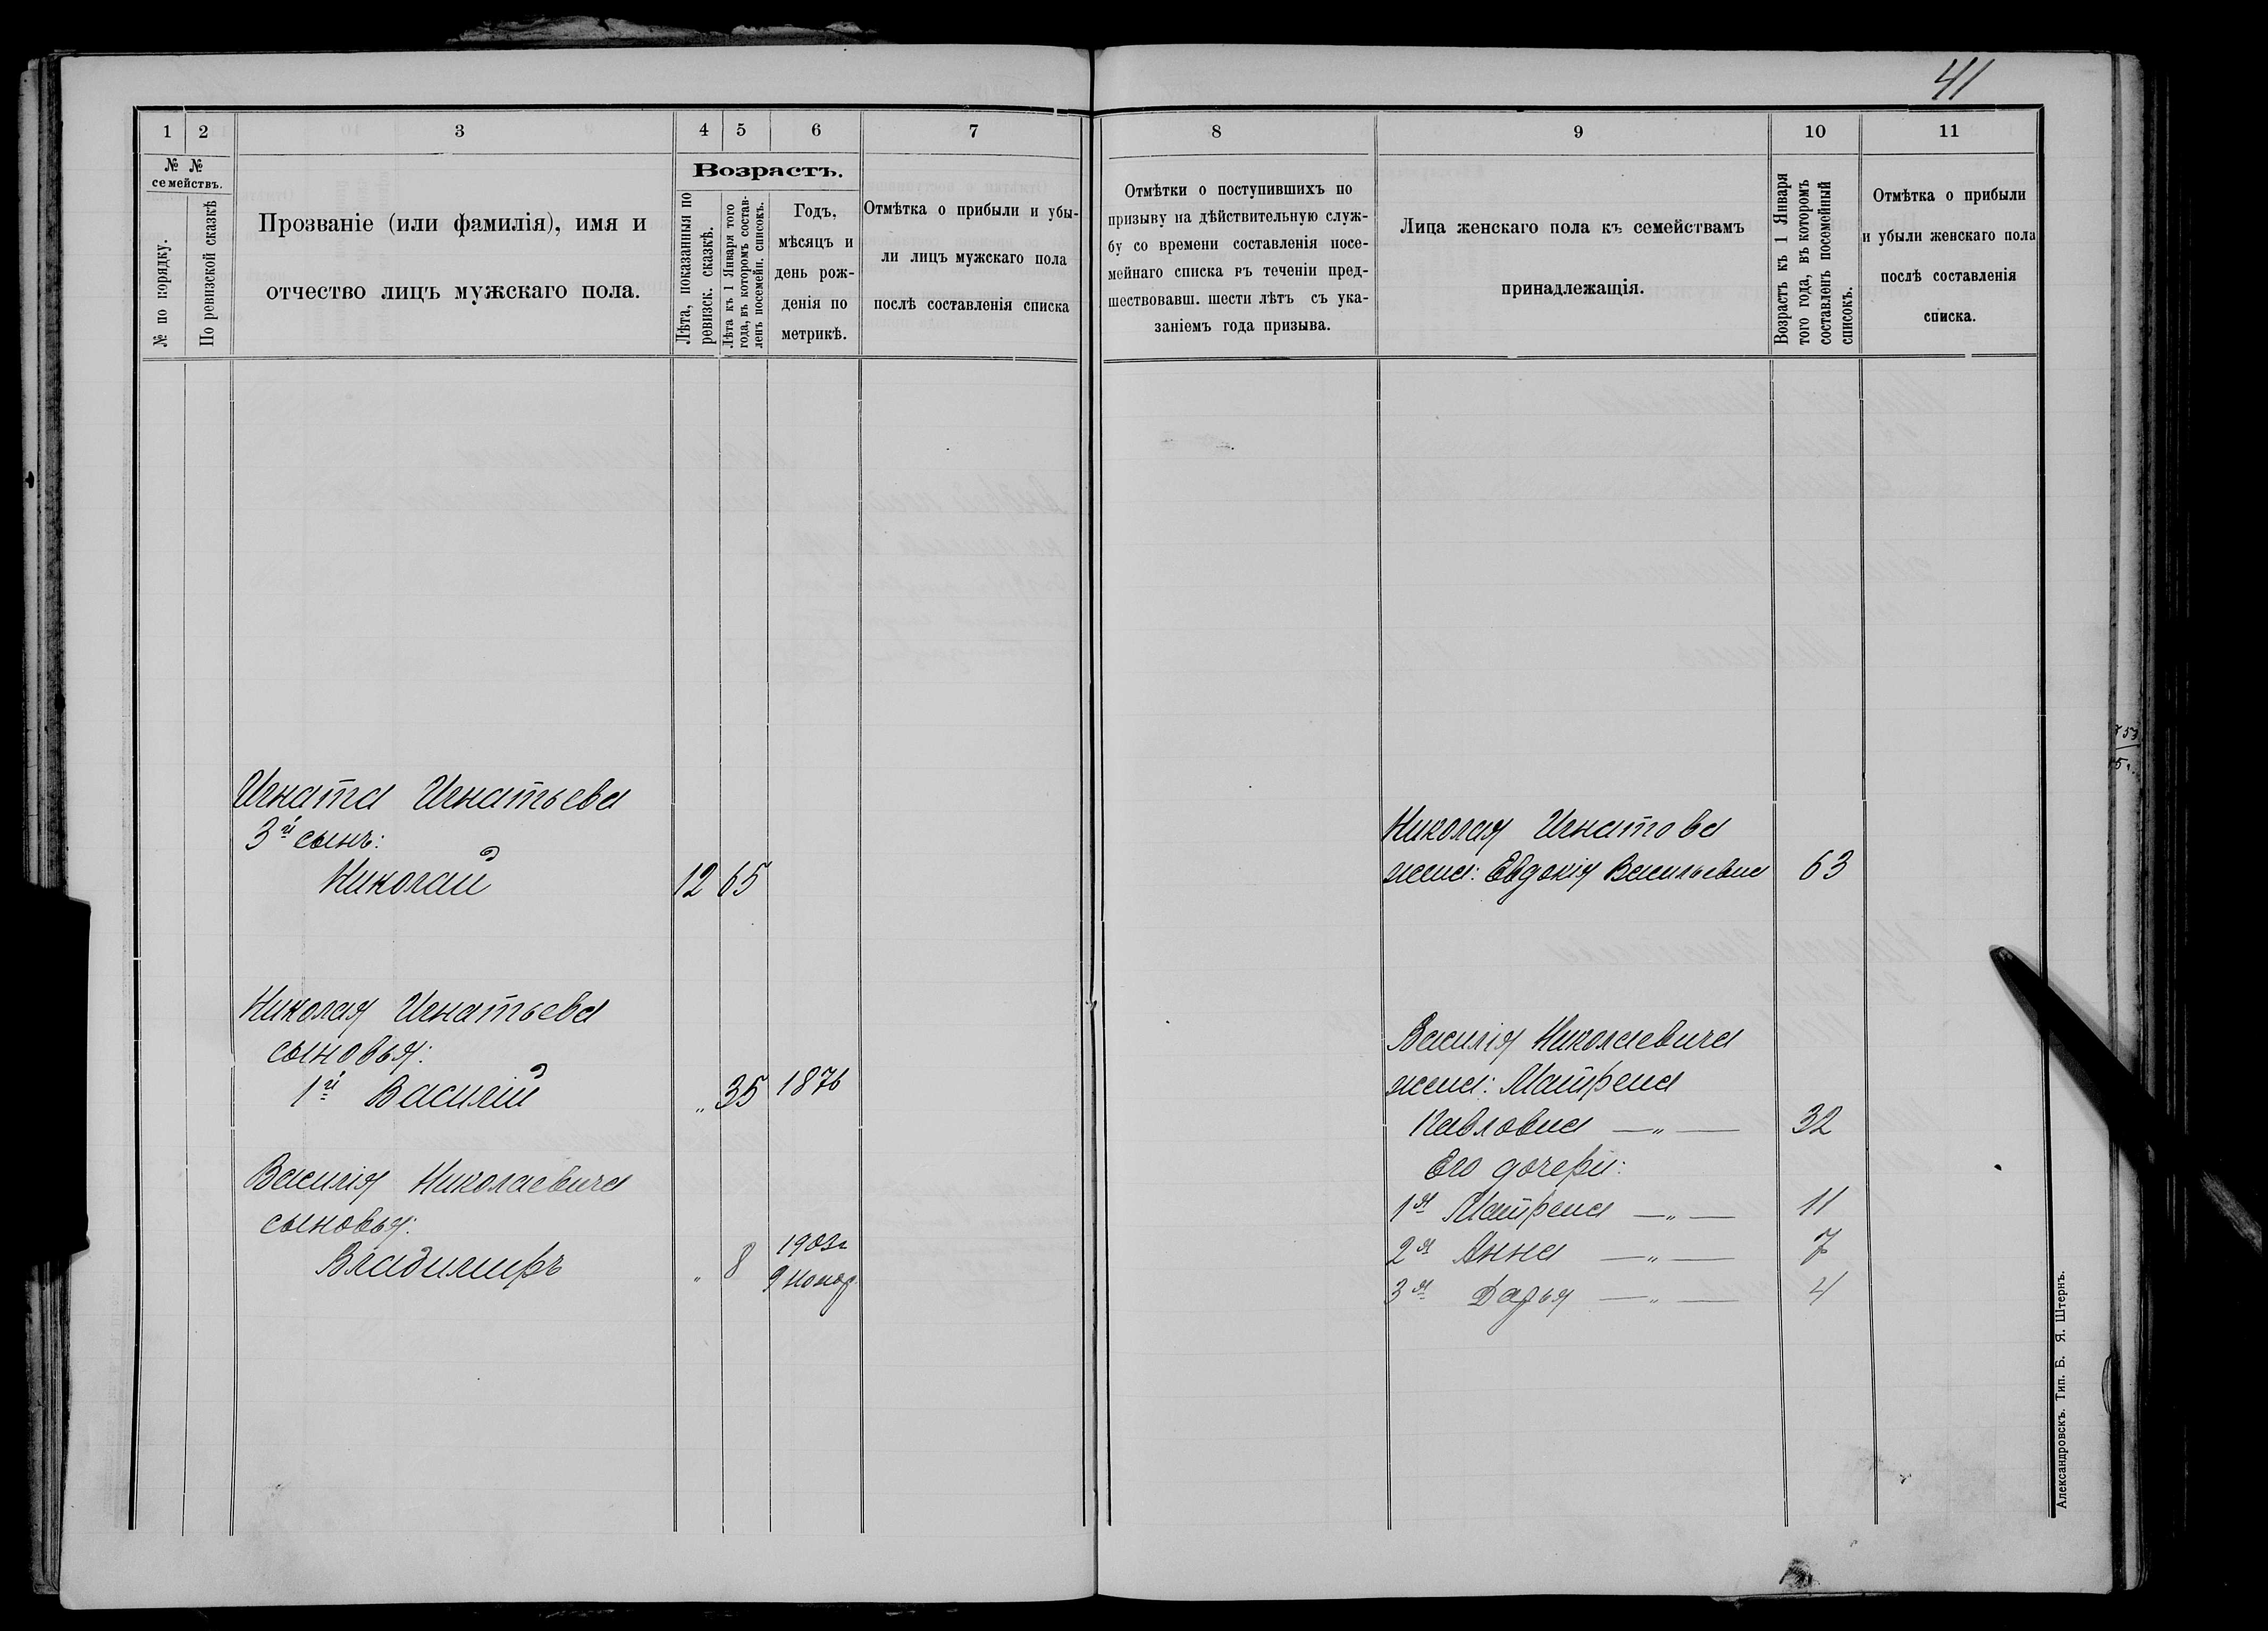 41
1 2 3 4 5 6 7
№ № семействъ.
№ по порядку.
По ревизской сказкѣ
Прозваніе (или фамилія), имя и
отчество лицъ мужскаго пола.
Возрастъ.
Лѣта, показанныя по
ревизск. сказкѣ.
Лѣта къ 1 Января того
года, въ которомъ состав-
ленъ посемейн. списокъ.
Годъ,
мѣсяцъ и
день рож-
денія по
метрикѣ.
Отмѣтка о прибыли и убы-
ли лицъ мужскаго пола
послѣ составленія списка
Игната Игнатьева
3й сынъ:
Николай 12 65
Николая Игнатьева
сыновья:
1й Василій „ 35 1876
Василія Николаевича
сыновья:
Владимиръ „ 8 1903г
9 Ноября
8 9 10 11
Отмѣтки о поступившихъ по
призыву на дѣйствительную служ-
бу со времени составленія посе-
мейнаго списка въ теченіи пред-
шествовавш. шести лѣтъ съ ука-
заніемъ года призыва.
Лица женскаго пола къ семействамъ
принадлежащія.
Возрастъ къ 1 Января
того года, въ которомъ
составленъ посемейный
списокъ.
Отмѣтка о прибыли
и убыли женскаго пола
послѣ составленія
списка.
Николая Игнатова
жена: Евдокія Васильевна 63
Василія Николаевича
жена: Матрена
Павловна —„— 32
Его дочери:
1я Матрена —„— 11
2я Анна —„— 7
3я Дарья —„— 4
Александровскъ. Тип. Б. Я. Штернъ.